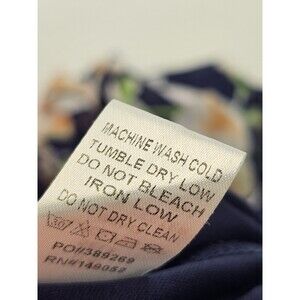 MACHINE WASH COLD
TUMBLE DRY LOW
DO NOT BLEACH
IRON LOW
DO NOT DRY CLEAN
PO#389269
RN#149052